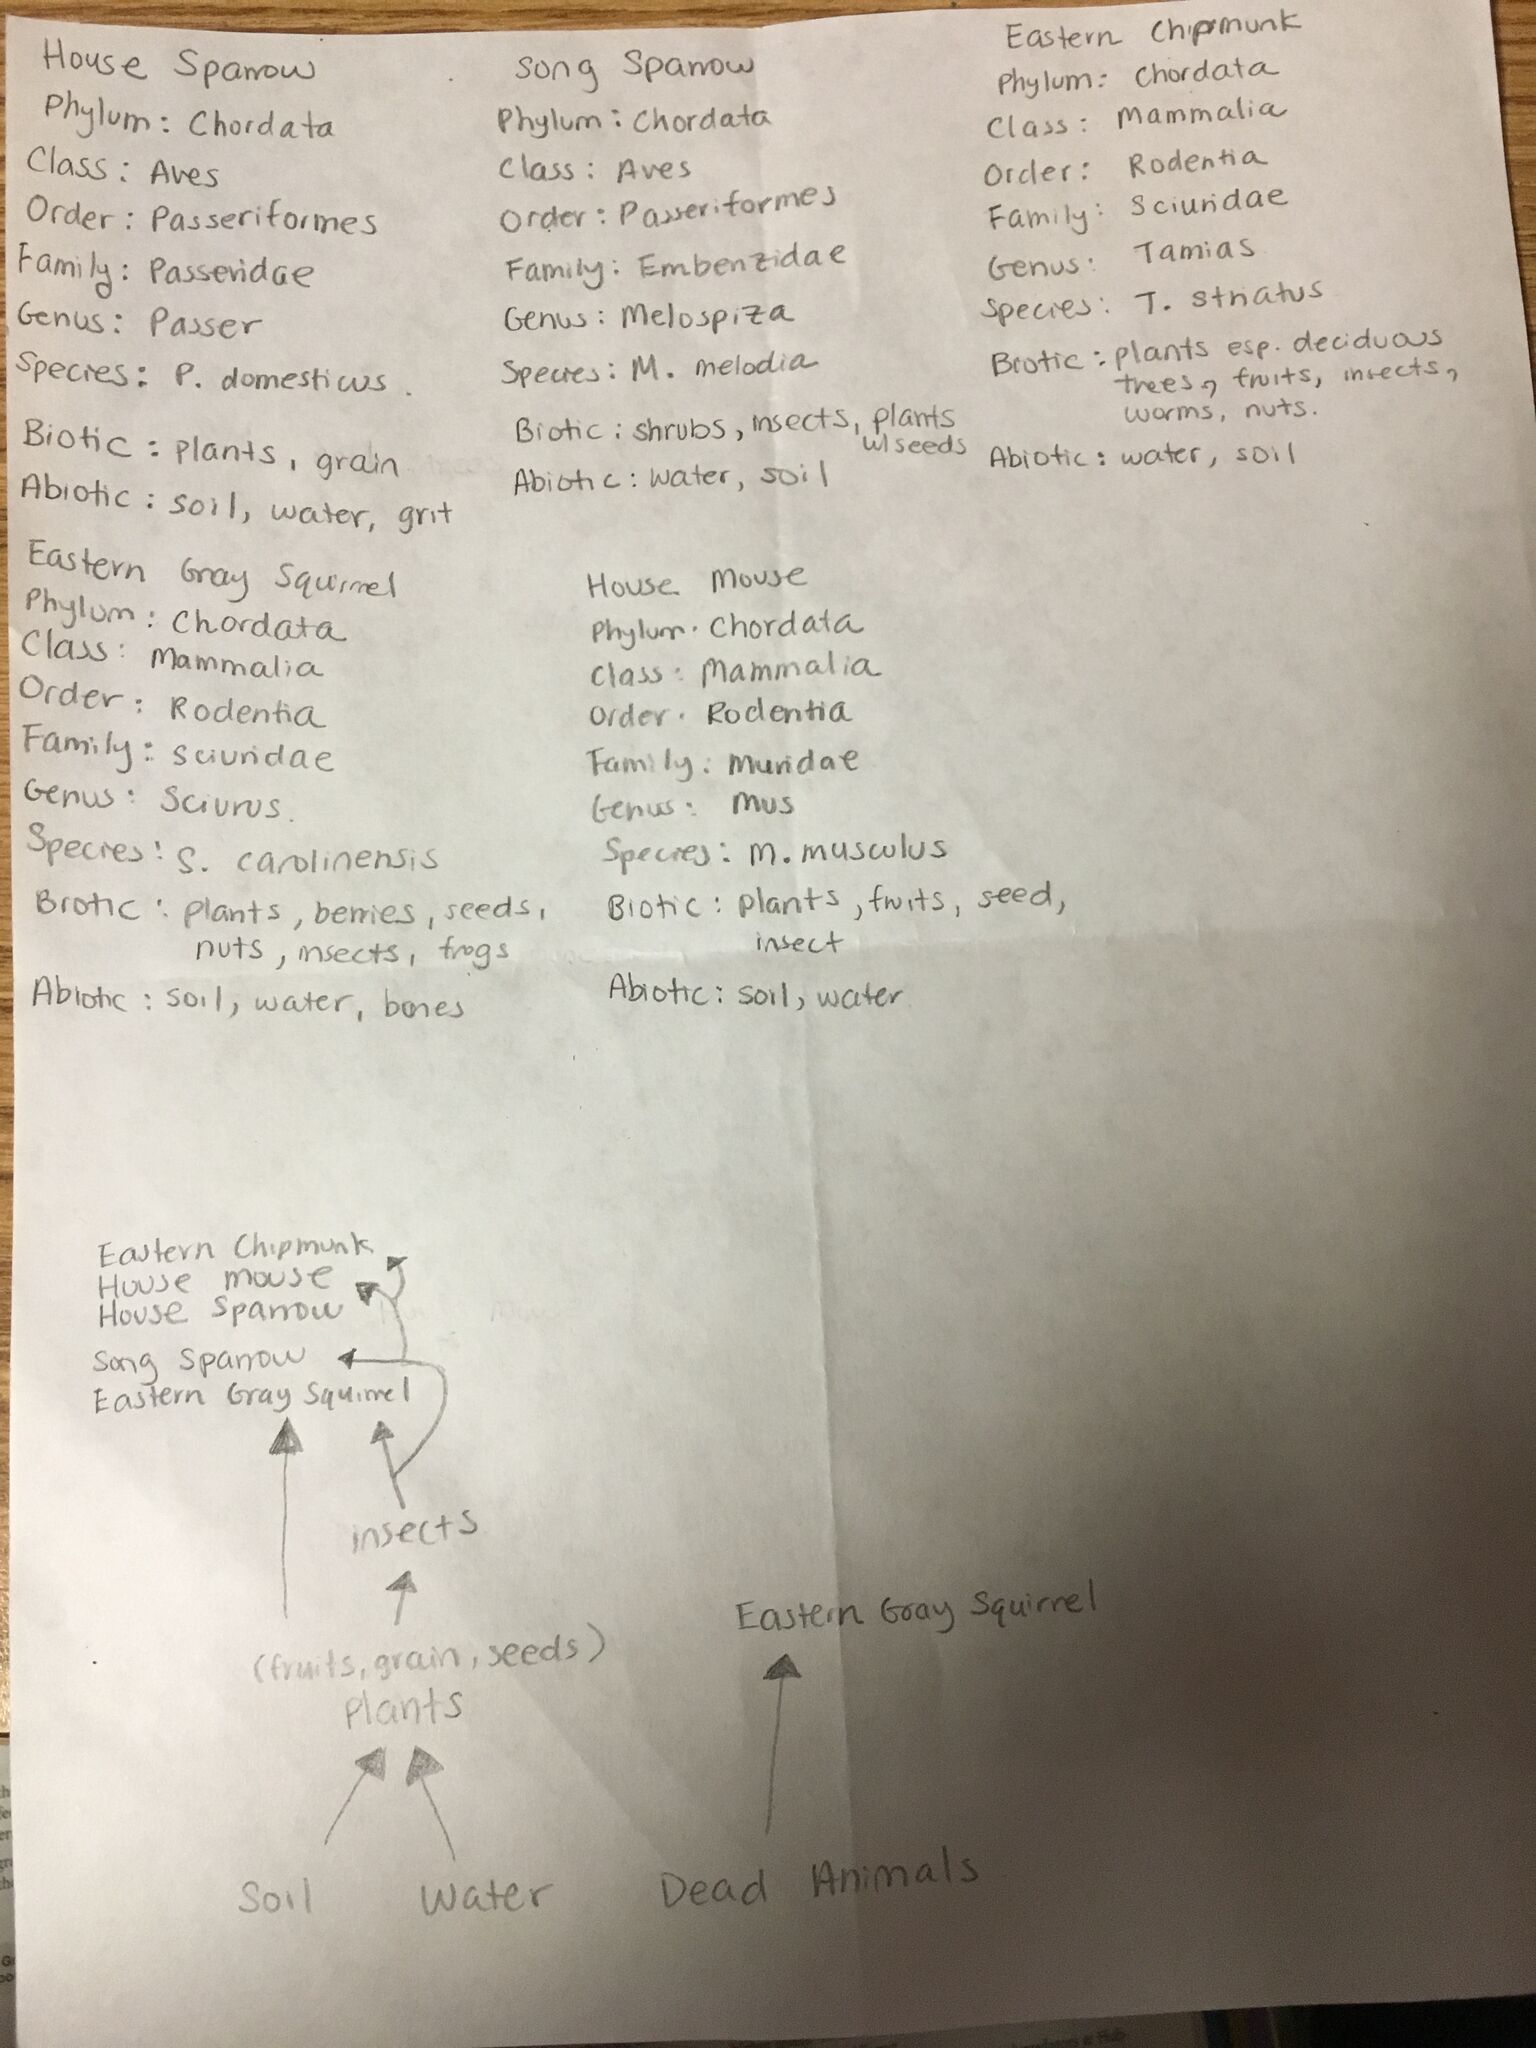 House Sparrow
Phylum: Chordata
Class: Aves
Order: Passeriformes
Family: Passeridae
Genus: Passer
Species: P. domesticus.
Biotic: plants, grain
Abiotic: soil, water, grit
Song Sparrow
Phylum: Chordata
Class: Aves
Order: Passeriformes
Family: Emberizidae
Genus: Melospiza
Species: M. melodia
Biotic: shrubs, insects, plants
w/seeds
Abiotic: water, soil
Eastern Chipmunk
Phylum: Chordata
Class: Mammalia
Order: Rodentia
Family: Sciuridae
Genus: Tamias
Species: T. striatus
Biotic: plants esp. deciduous
trees, fruits, insects,
worms, nuts.
Abiotic: water, soil
Eastern Gray Squirrel
Phylum: Chordata
Class: Mammalia
Order: Rodentia
Family: Sciuridae
Genus: Sciurus.
Species: S. carolinensis
Biotic: plants, berries, seeds,
nuts, insects, frogs
Abiotic: soil, water, bones
House Mouse
Phylum. Chordata
Class: Mammalia
Order. Rodentia
Family: Muridae
Genus: Mus
Species: M. musculus
Biotic: plants, fruits, seed,
insect
Abiotic: soil, water
Eastern Chipmunk
House mouse
House Sparrow
Song Sparrow
Eastern Gray Squirrel
insects
(fruits, grain, seeds)
Plants
Soil Water
Eastern Gray Squirrel
Dead Animals